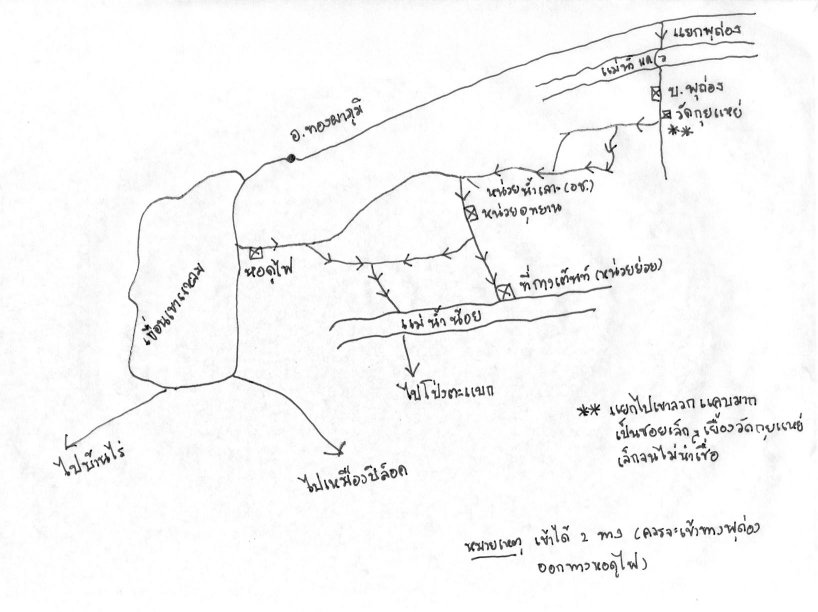 แยกพุถ่อง
แม่น้ำแคว
บ.พุถ่อง
วัดกุยแหย่
**
อ.ทองผาภูมิ
หน่วยน้ำ (อช.)
หน่วยอุทยาน
เขื่อนเขาแหลม
หอดูไฟ
ที่กางเต็นท์ (หน่วยย่อย)
แม่น้ำน้อย
ไปโป่งตะแบก
ไปบ้านไร่
ไปเหมืองปิล็อค
** แยกไปเขา แคบมาก
เป็นซอยเล็กๆ เยื้องวัดกุยแหย่
เล็กจนไม่น่าเชื่อ
หมายเหตุ เข้าได้ 2 ทาง (ควรจะเข้าทางพุถ่อง
ออกทางหอดูไฟ)